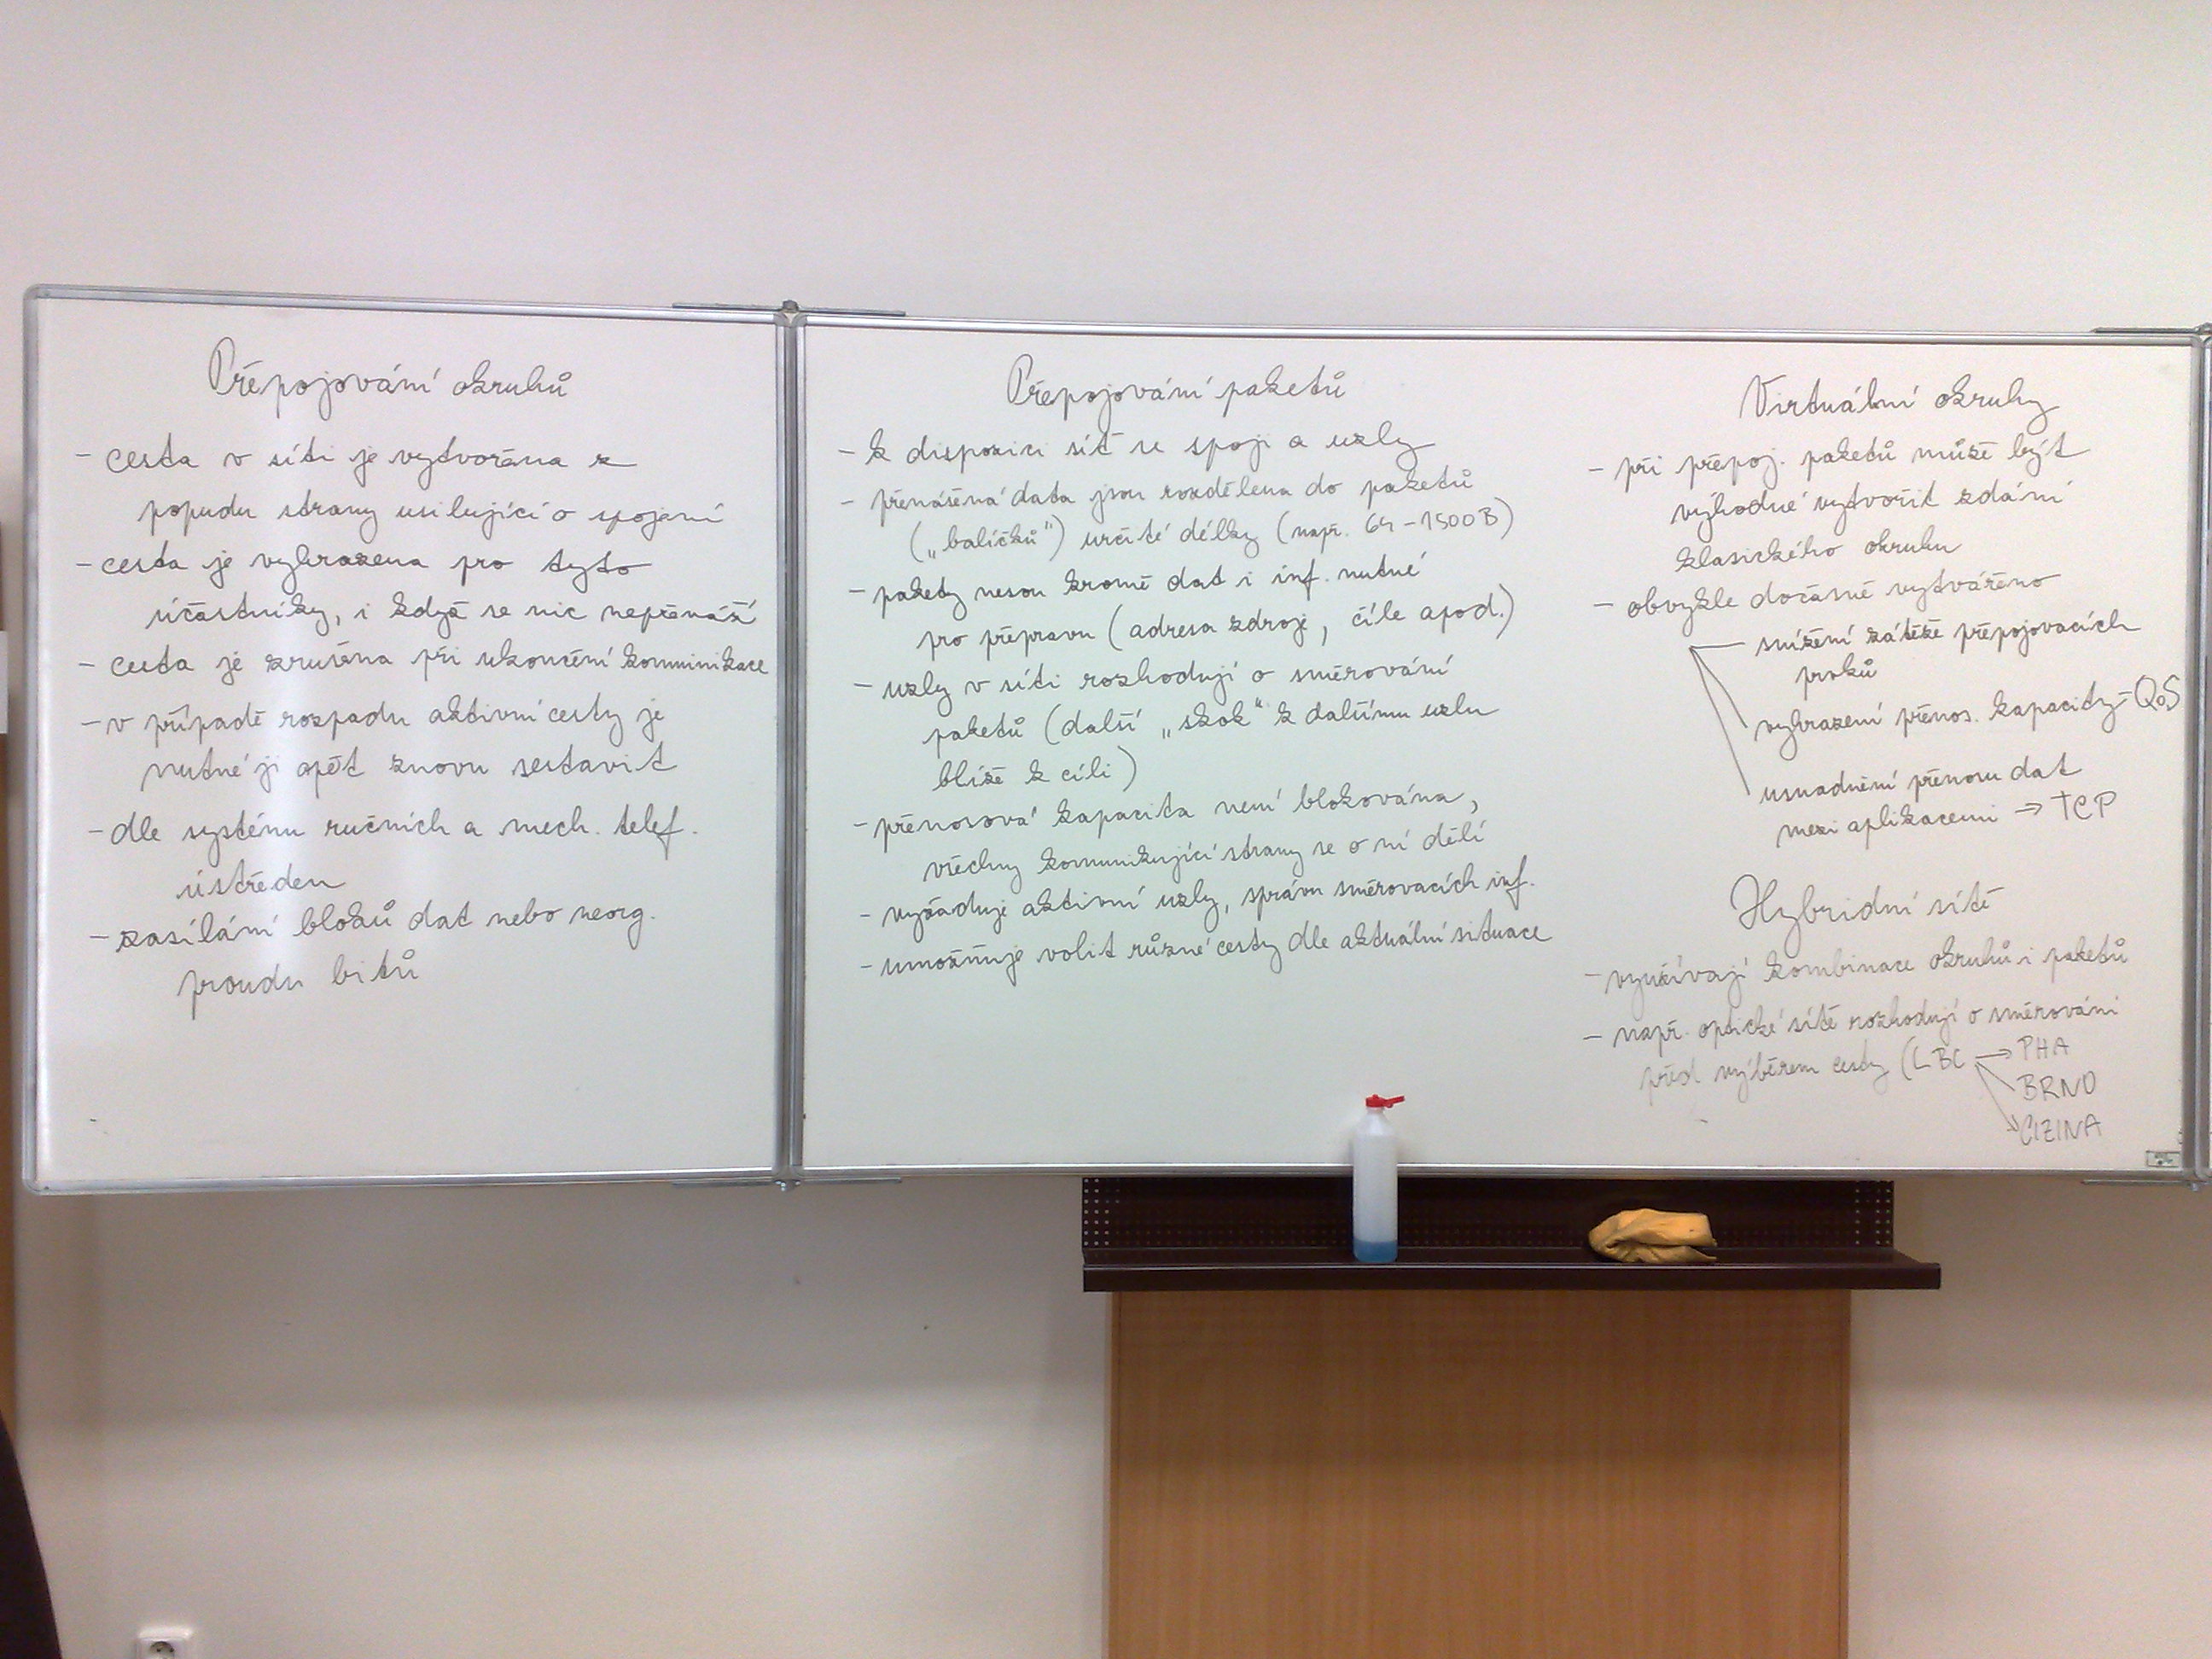 Přepojování okruhů
- cesta v síti je vytvořena z
popudu strany usilující o spojení
- cesta je vyhrazena pro tyto
účastníky, i když se nic nepřenáší
- cesta je zrušena při ukončení komunikace
- v případě rozpadu aktivní cesty je
nutné ji opět znovu sestavit
- dle systému ručních a mech. telef.
ústředen
- zasílání bloků dat nebo neorg.
proudu bitů
Přepojování paketů
- k dispozici síť se spoji a uzly
- přenášená data jsou rozdělena do paketů
(„balíčků") určité délky (např. 64-1500B)
- pakety nesou kromě dat i inf. nutné
pro přepravu (adresa zdroje, cíle apod.)
- uzly v síti rozhodují o směrování
paketů (další „skok" k dalšímu uzlu
blíže k cíli)
- přenosová kapacita není blokována,
všechny komunikující strany se o ní dělí
- vyžaduje aktivní uzly, správu směrovacích inf.
- umožňuje volit různé cesty dle aktuální situace
Virtuální okruhy
- při přepoj. paketů může být
výhodné vytvořit zdání
klasického okruhu
- obvykle dočasně vytvářeno
snížení zátěže přepojovacích
prvků
vyhrazení přenos. kapacity - QoS
usnadnění přenosu dat
mezi aplikacemi → TCP
Hybridní sítě
- využívají kombinace okruhů i paketů
- např. optické sítě rozhodují o směrování
před výběrem cesty (LBC → PHA
BRNO
CIZINA